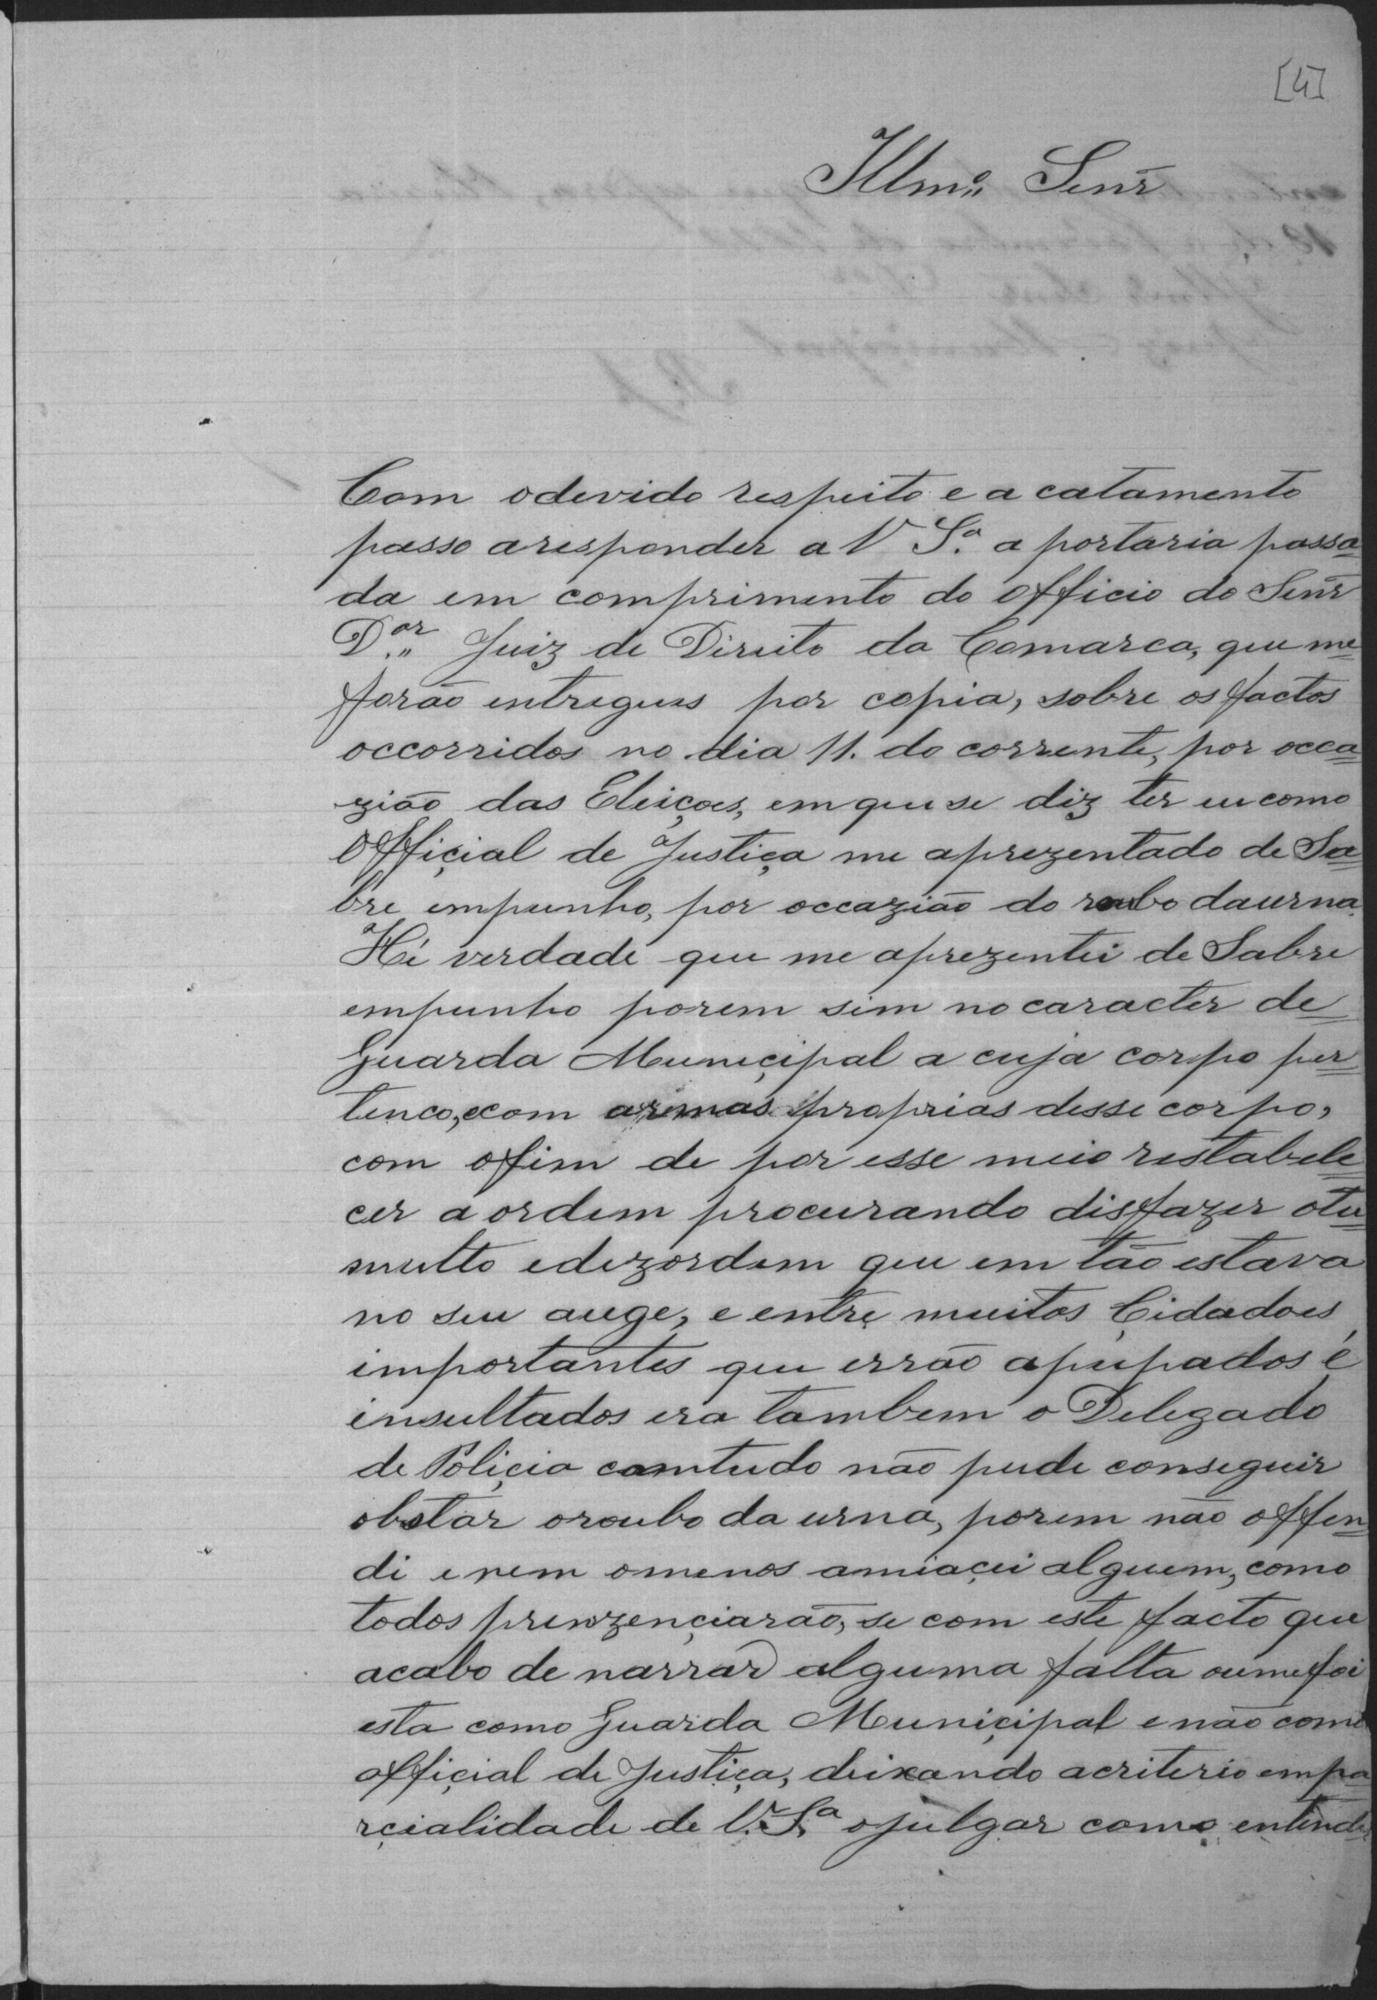 [4]
Illmº Senr
Com odevido respeito e a catamento
passo aresponder a V Sª a portaria passa=
da em comprimento do officio do Senr
Dor Juiz de Direito da Comarca, que me
forão entregues por copia, sobre os factos
occorridos no dia 11. do corrente, por occa=
zião das Eleiçoes, em que se diz ter eu como
Offiçial de Justiça me aprezentado de Sa=
bre empunho, por occazião do roubo daurna.
Hé verdade que me aprezentei de Sabre
empunho porem sim no caracter de
Guarda Muniçipal a cuja corpo per=
tenco, ecom armas proprias desse corpo,
com ofim de por esse meio restabele=
cer a ordem procurando disfazer otu=
multo edezordem que em tão estava
no seu auge, e entre muitos Çidadoes
importantes que errão apupados é
insultados era tambem o Delegado
de Poliçia comtudo não pude conseguir
obstar oroubo da urna, porem não offen=
di e nem omenos amiaçei alguem, como
todos prenzençiarão, se com este facto que
acabo de narrar alguma falta oume foi
esta como Guarda Muniçipal e não como
offiçial de Justiça, deixando acriterio empa=
rçialidade de V. Sª ojulgar como entender